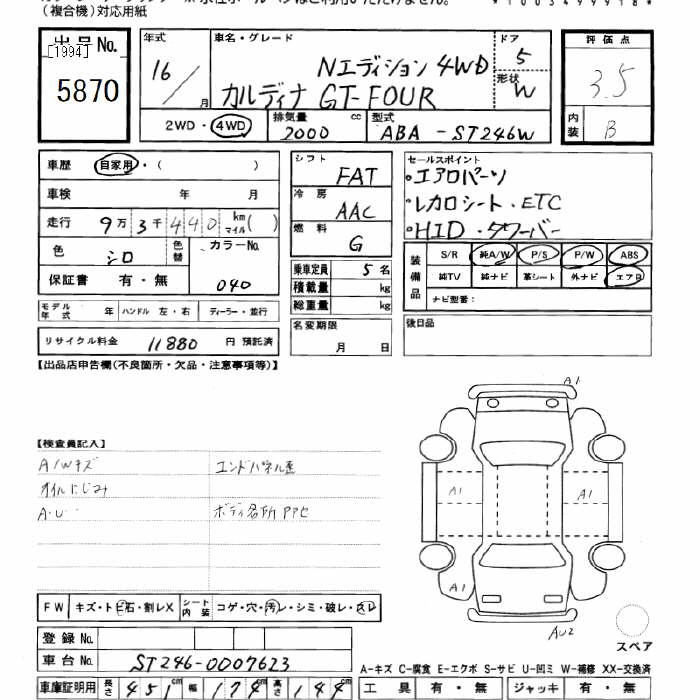 （複合機）対応用紙
出品No.
[1994]
5870
年式
16
月
車名・グレード
Nエディション 4WD
カルディナ GT-FOUR
ドア
5
形状
W
評価点
3.5
内装
B
2WD・4WD
排気量
2000
cc
型式
ABA - ST246W
車歴
自家用・(
)
車検
年
月
走行
9万3千440
km
マイル
( )
色
シロ
色替
カラーNo.
040
保証書
有・無
モデル年式
年
ハンドル
左・右
ディーラー・並行
リサイクル料金
11880
円
預託済
シフト
FAT
冷房
AAC
燃料
G
乗車定員
5
名
積載量
kg
総重量
kg
名変期限
月
日
セールスポイント
・エアロパーツ
・レカロシート・ETC
・HID・タワーバー
装備品
S/R
純A/W
P/S
P/W
ABS
純TV
純ナビ
革シート
外ナビ
エアロ
ナビ型番：
後日品
【出品店申告欄(不良箇所・欠品・注意事項等)】
【検査員記入】
A/Wキズ
エンドパネル歪
オイルにじみ
A・U
A1
A1
A1
A1
AU2
FW
キズ・トビ石・割レX
シート内装
コゲ・穴・汚レ・シミ・破レ・スレ
登録No.
車台No.
ST246-0007623
車庫証明用
長さ
451
cm
幅
174
cm
高さ
144
cm
スペア
A-キズ C-腐食 E-エクボ S-サビ U-凹ミ W-補修 XX-交換済
工具
有・無
ジャッキ
有・無